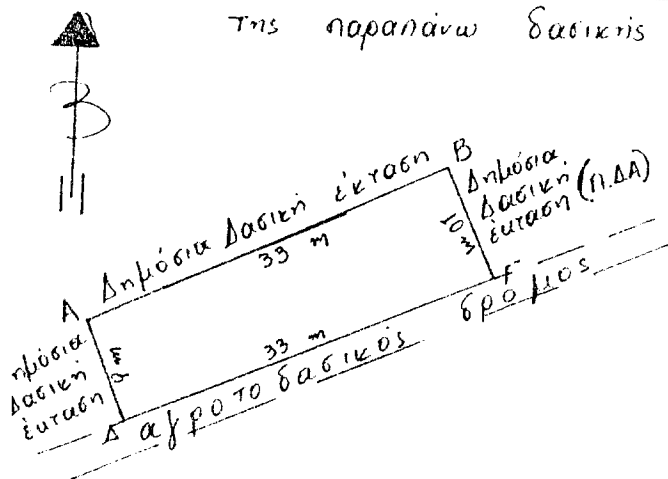 της παραπάνω δασικής
Β
Δημόσια Δασική έκταση
Β
Δημόσια
Δασική
έκταση (Π.ΔΑ)
33 m
10 m
Α
Γ
33 m
ημόσια
Δασική
έκταση
9 m
Δ
αγροτοδασικός δρόμος